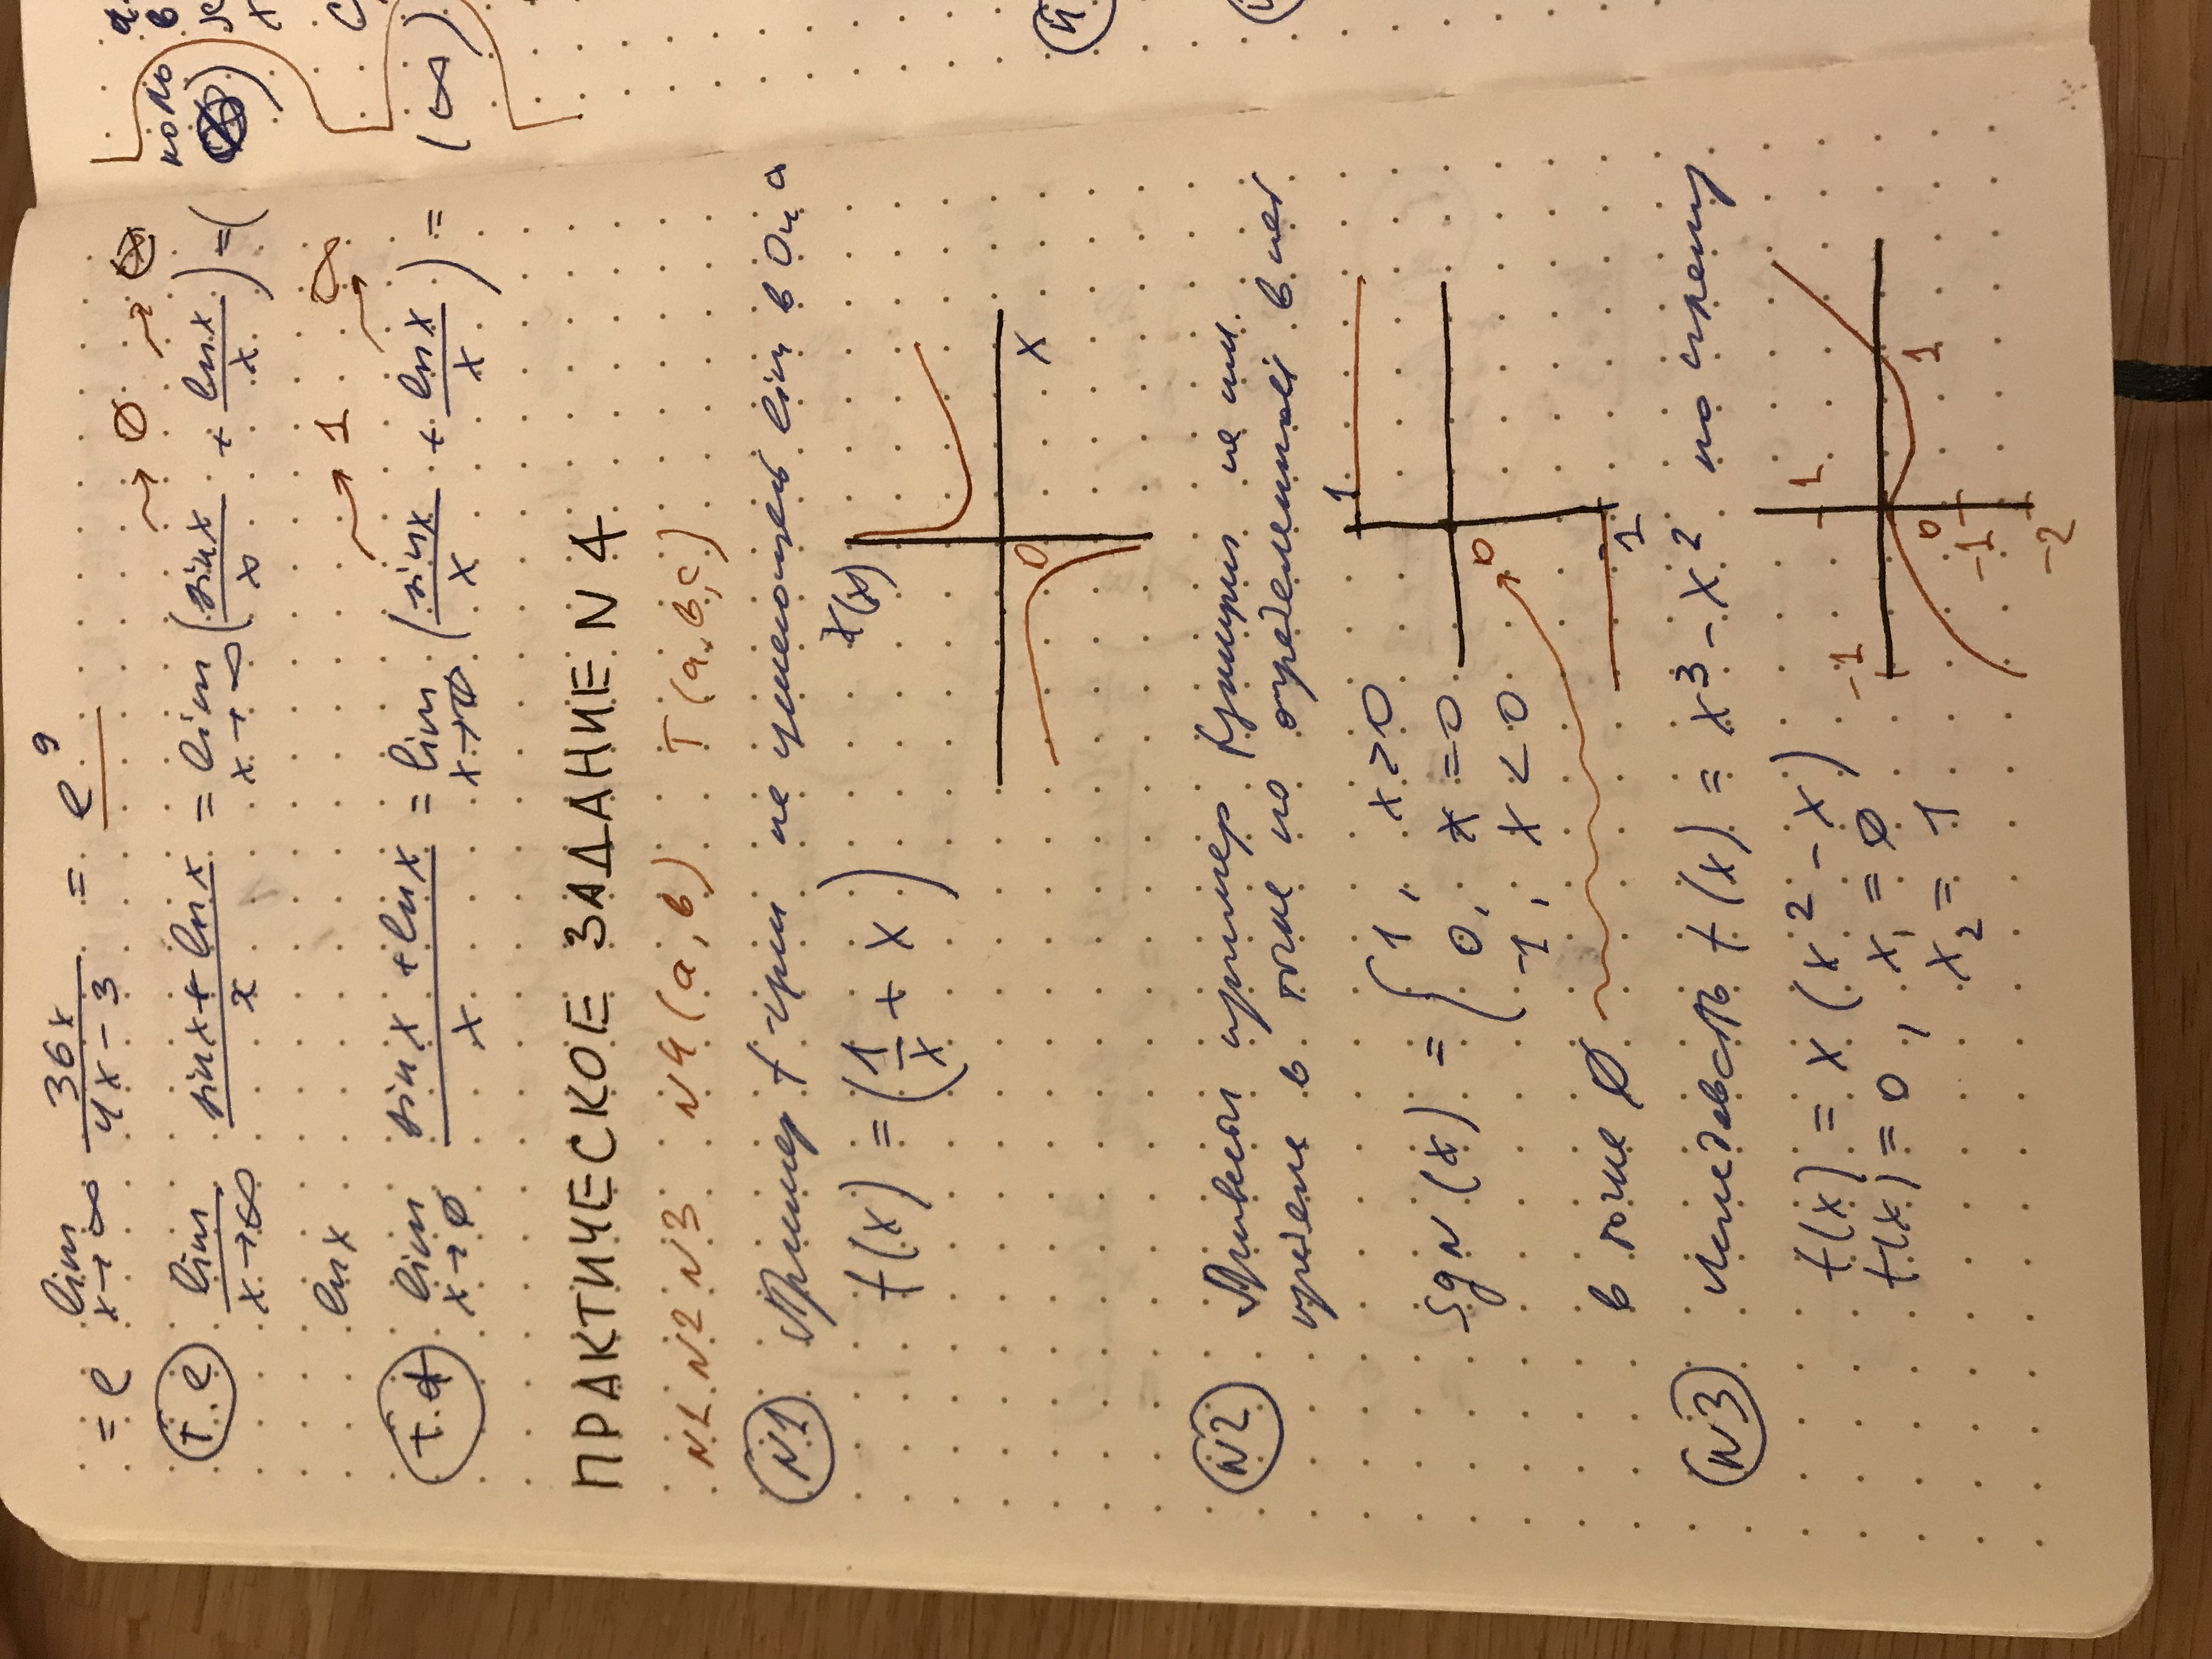 = e lim x→∞ 36x / 4x-3 = e^9
→ 0 →
т.e lim x→∞ sinx + lnx / x = lim x→∞ ( sinx / x + lnx / x ) = (
ноль
)
lnx
→ 1 → ∞
т.d lim x→0 sinx + lnx / x = lim x→0 ( sinx / x + lnx / x ) = (∞)
ПРАКТИЧЕСКОЕ ЗАДАНИЕ N 4
N1 N2 N3 N4 (а, в) Т (а, в, с)
N1 Пример f-ции не имеющей lim в 0 и ∞
f(x) = ( 1/x + x )
f(x)
0 x
N2 пример функции не им.
предела в точке но определенной в ней
sgn (x) = { 1, x > 0
0, x = 0
-1, x < 0
1
0
-1
в точке 0
N3 Исследовать f(x) = x³ - x² по
f(x) = x (x² - x)
f(x) = 0, x₁ = 0
x₂ = 1
1
-1
0 1
-1
-2